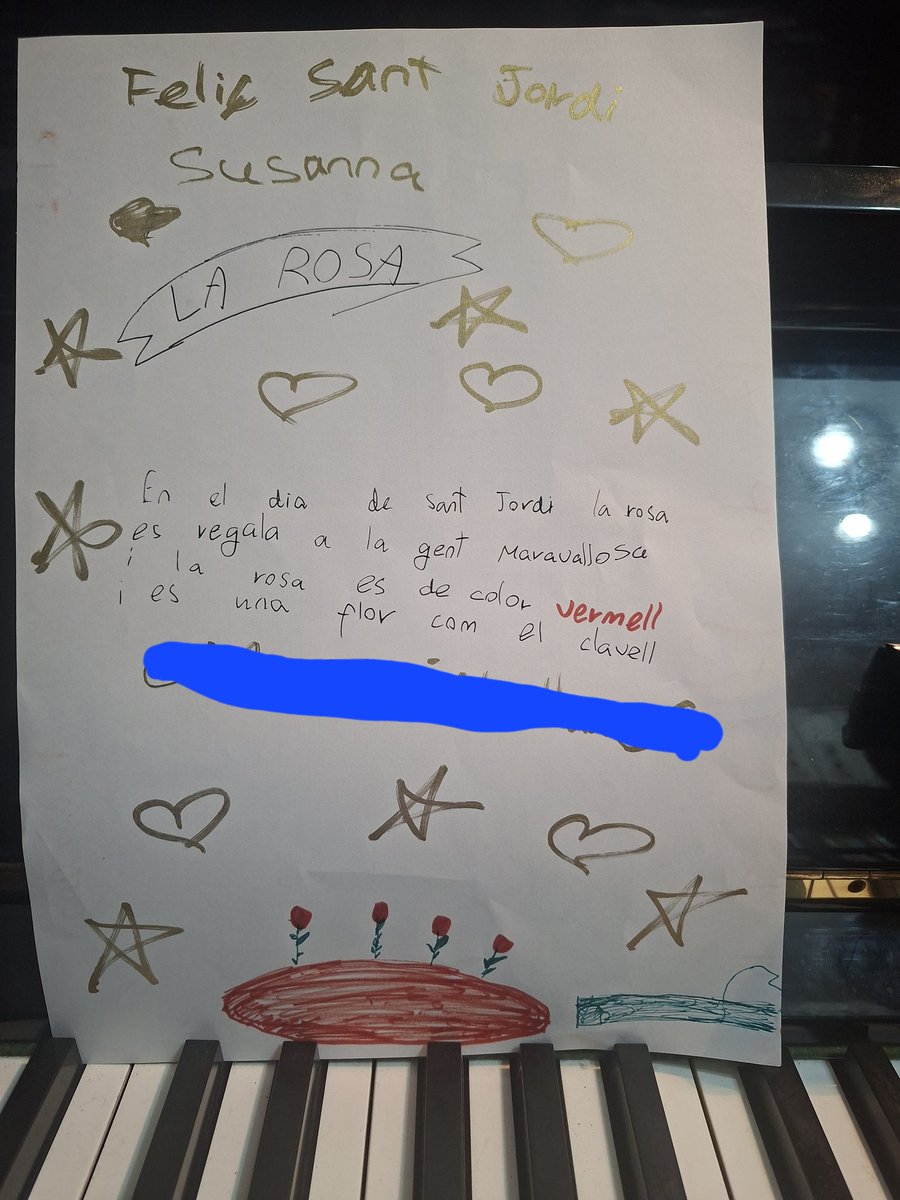 Feliç Sant Jordi
Susanna
LA ROSA
En el dia de sant Jordi la rosa
es regala a la gent Maravallosa
i la rosa es de color vermell
i es una flor com el clavell